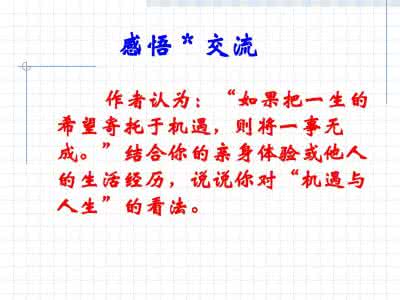 感悟*交流
作者认为：“如果把一生的
希望寄托于机遇，则将一事无
成。”结合你的亲身体验或他人
的生活经历，说说你对“机遇与
人生”的看法。